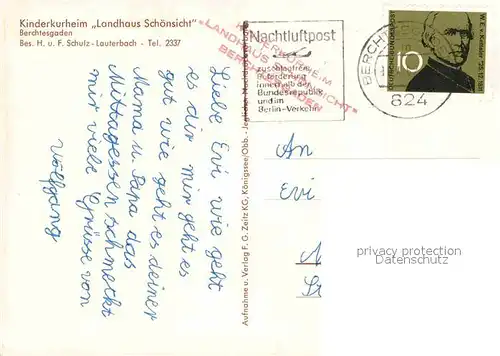 Kinderkurheim „Landhaus Schönsicht"
Berchtesgaden
Bes. H. u. F. Schulz - Lauterbach - Tel. 2337
KINDERKURHEIM
"LANDHAUS SCHÖNSICHT"
BERCHTESGADEN
Nachtluftpost
zuschlagfreie
Beförderung
innerhalb der
Bundesrepublik
und im
Berlin-Verkehr
BERCHTESGADEN
824
10
W.E.v.Ketteler * 25.12.1811
Liebe Evi wie geht
es dir mir geht es
gut wie geht es deiner
Mama u. Papa das
Mittagessen schmeckt
mir viele Grüsse von
Wolfgang
Aufnahme u. Verlag F. G. Zeitz KG, Königssee/Obb. - Jeglicher Nachdruck
An
Evi
privacy protection
Datenschutz